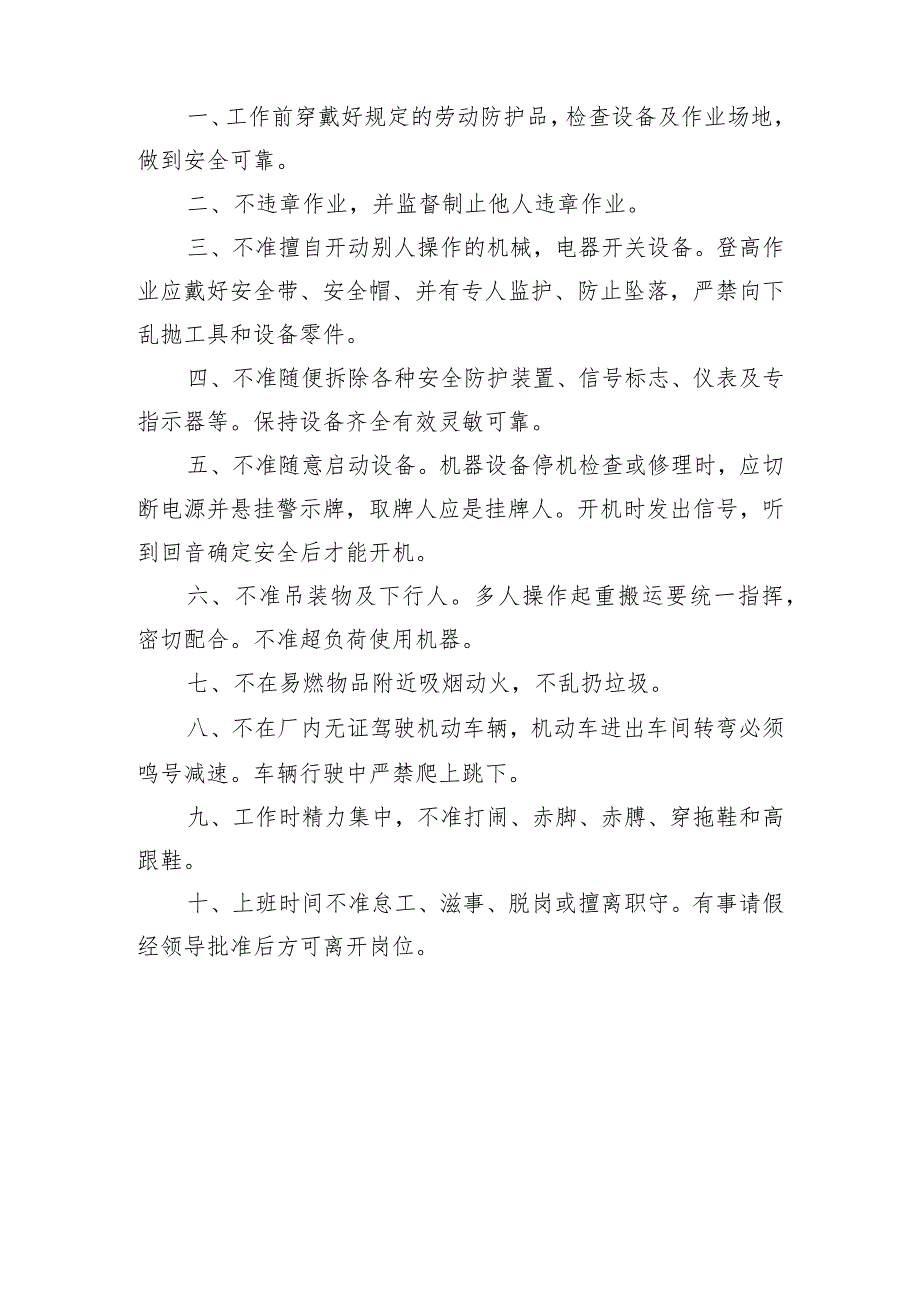 一、工作前穿戴好规定的劳动防护品，检查设备及作业场地，
做到安全可靠。
二、不违章作业，并监督制止他人违章作业。
三、不准擅自开动别人操作的机械，电器开关设备。登高作
业应戴好安全带、安全帽、并有专人监护、防止坠落，严禁向下
乱抛工具和设备零件。
四、不准随便拆除各种安全防护装置、信号标志、仪表及专
指示器等。保持设备齐全有效灵敏可靠。
五、不准随意启动设备。机器设备停机检查或修理时，应切
断电源并悬挂警示牌，取牌人应是挂牌人。开机时发出信号，听
到回音确定安全后才能开机。
六、不准吊装物及下行人。多人操作起重搬运要统一指挥，
密切配合。不准超负荷使用机器。
七、不在易燃物品附近吸烟动火，不乱扔垃圾。
八、不在厂内无证驾驶机动车辆，机动车进出车间转弯必须
鸣号减速。车辆行驶中严禁爬上跳下。
九、工作时精力集中，不准打闹、赤脚、赤膊、穿拖鞋和高
跟鞋。
十、上班时间不准怠工、滋事、脱岗或擅离职守。有事请假
经领导批准后方可离开岗位。